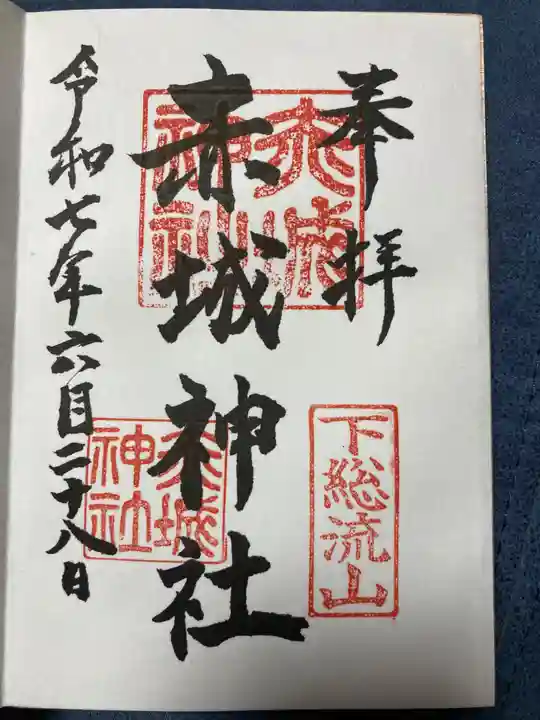 奉拝
下総流山
赤城神社
赤城神社
令和七年六月二十八日